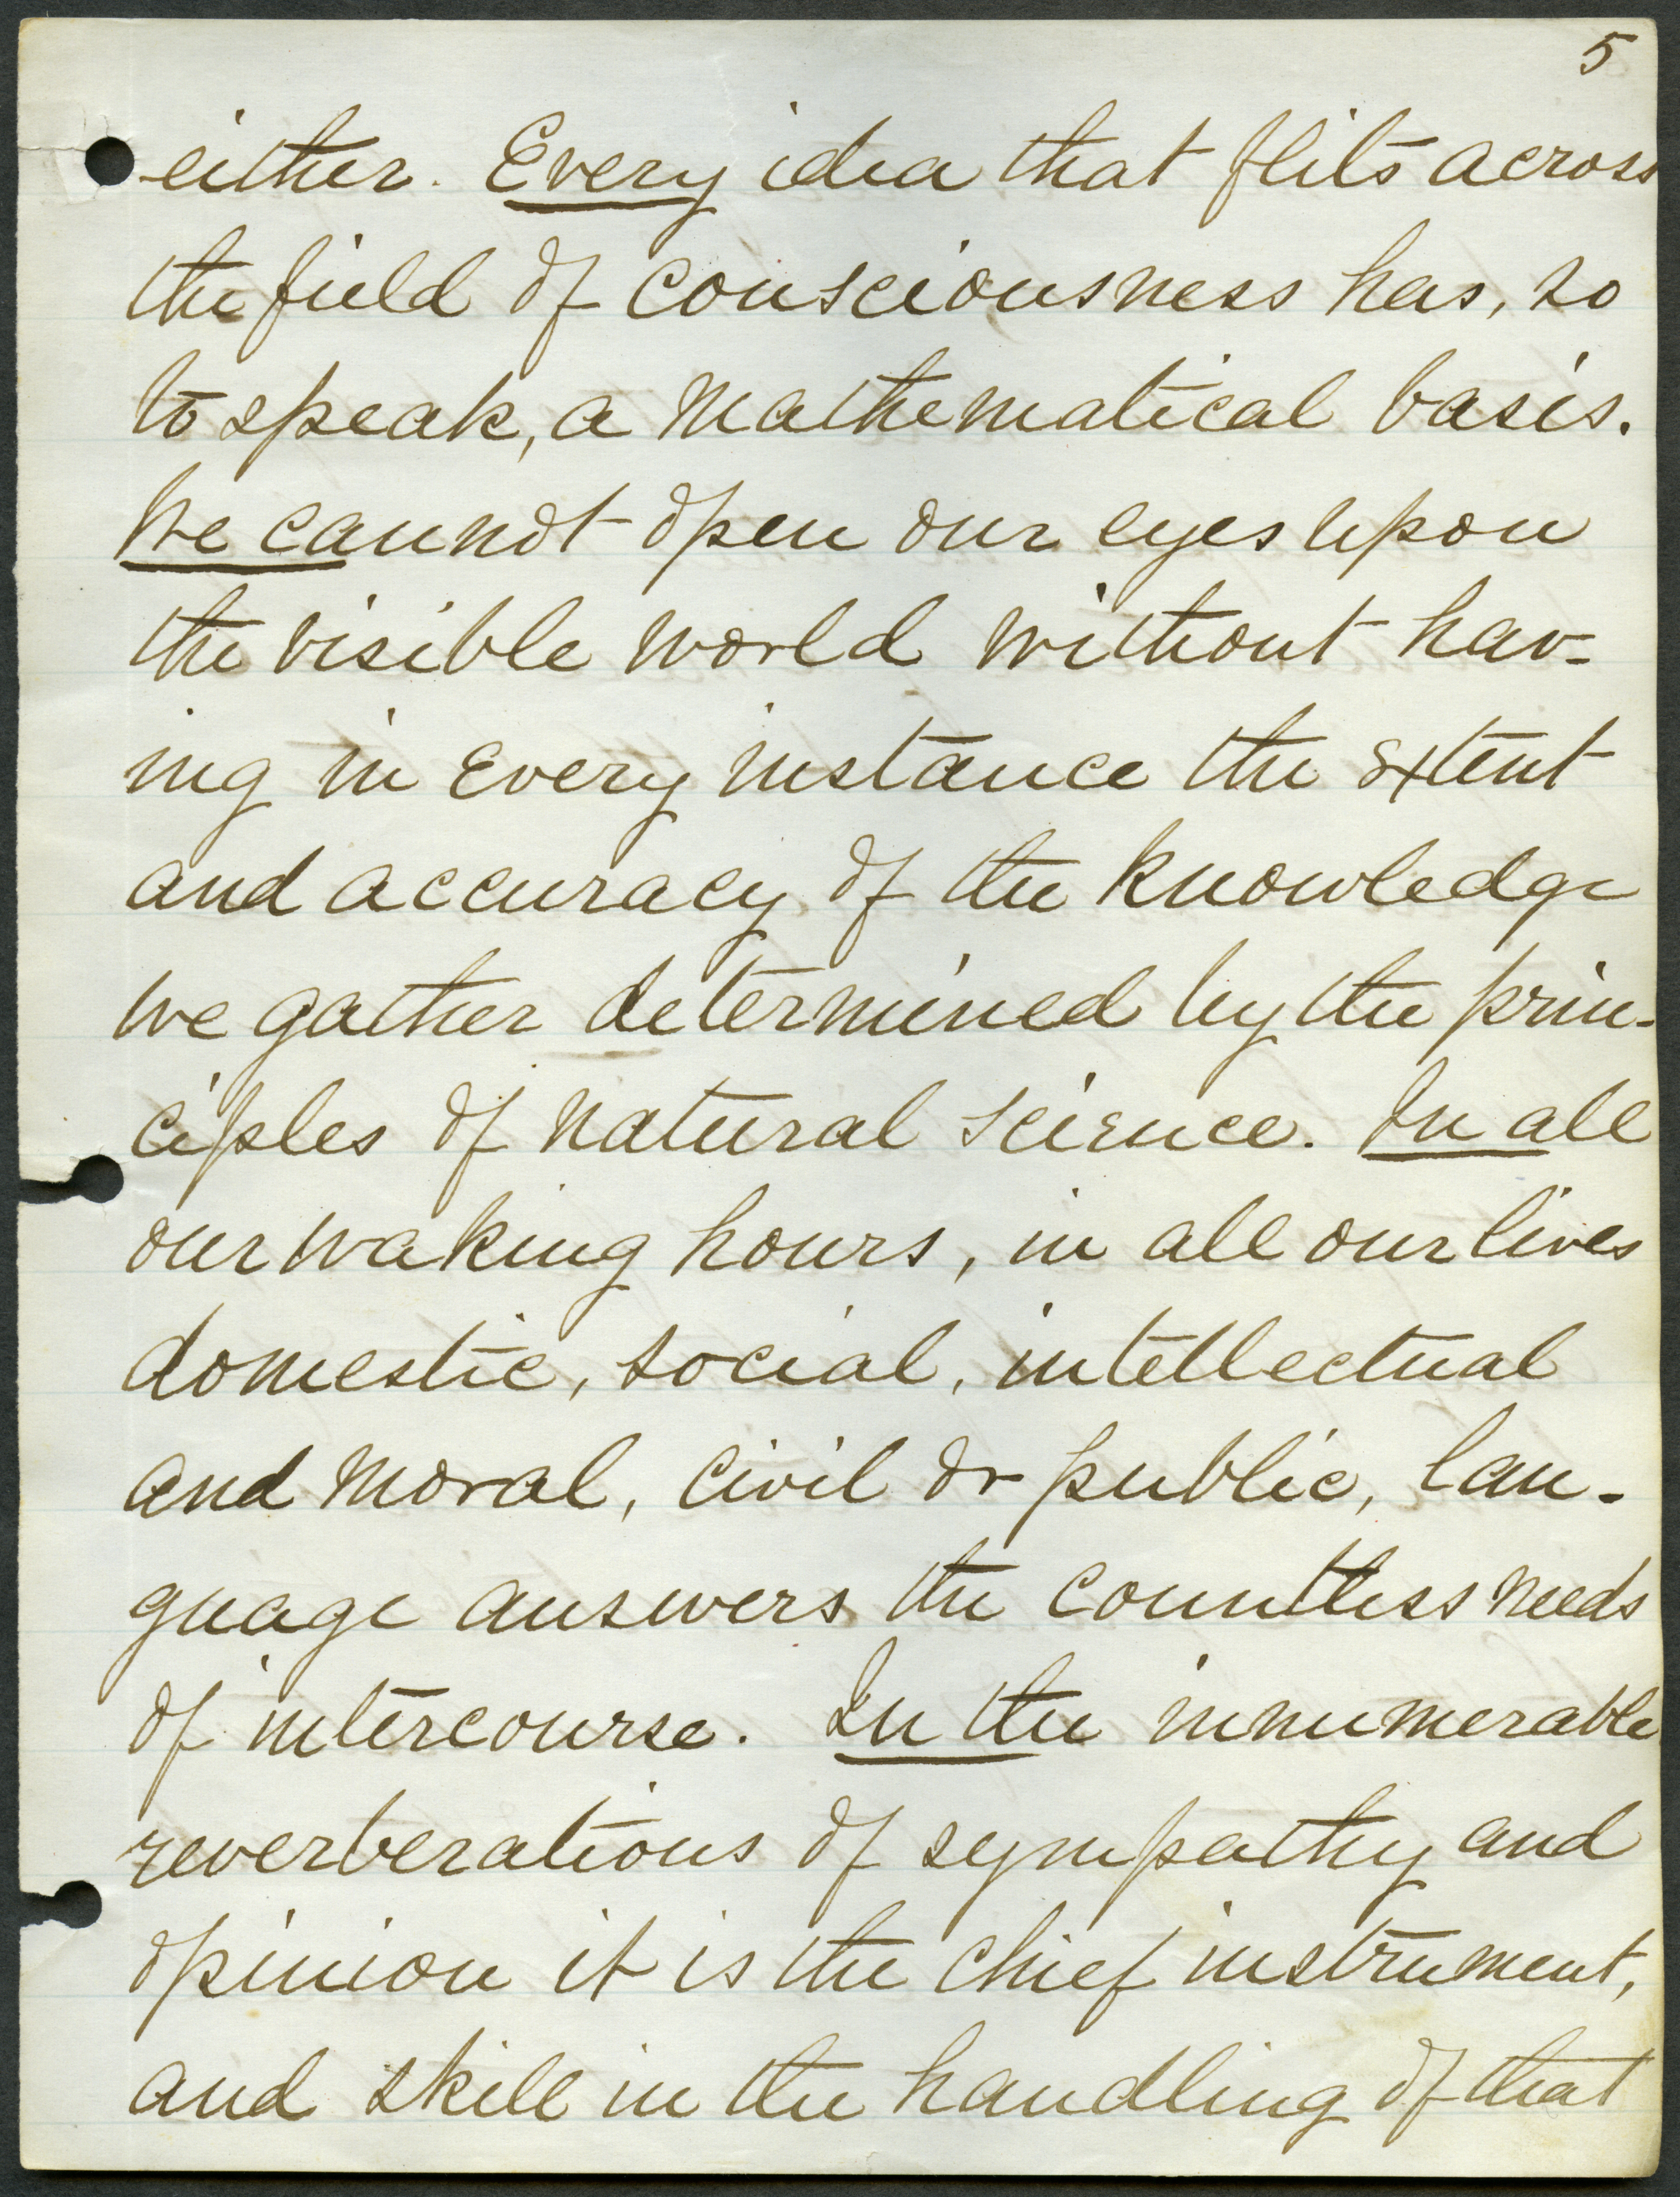 5
either. Every idea that flits across
the field of consciousness has, so
to speak, a mathematical basis.
We cannot open our eyes upon
the visible world without hav-
ing in every instance the extent
and accuracy of the knowledge
we gather determined by the prin-
ciples of natural science. In all
our waking hours, in all our lives
domestic, social, intellectual
and moral, civil or public, lan-
guage answers the countless needs
of intercourse. In the innumerable
reverberations of sympathy and
opinion it is the chief instrument,
and skill in the handling of that